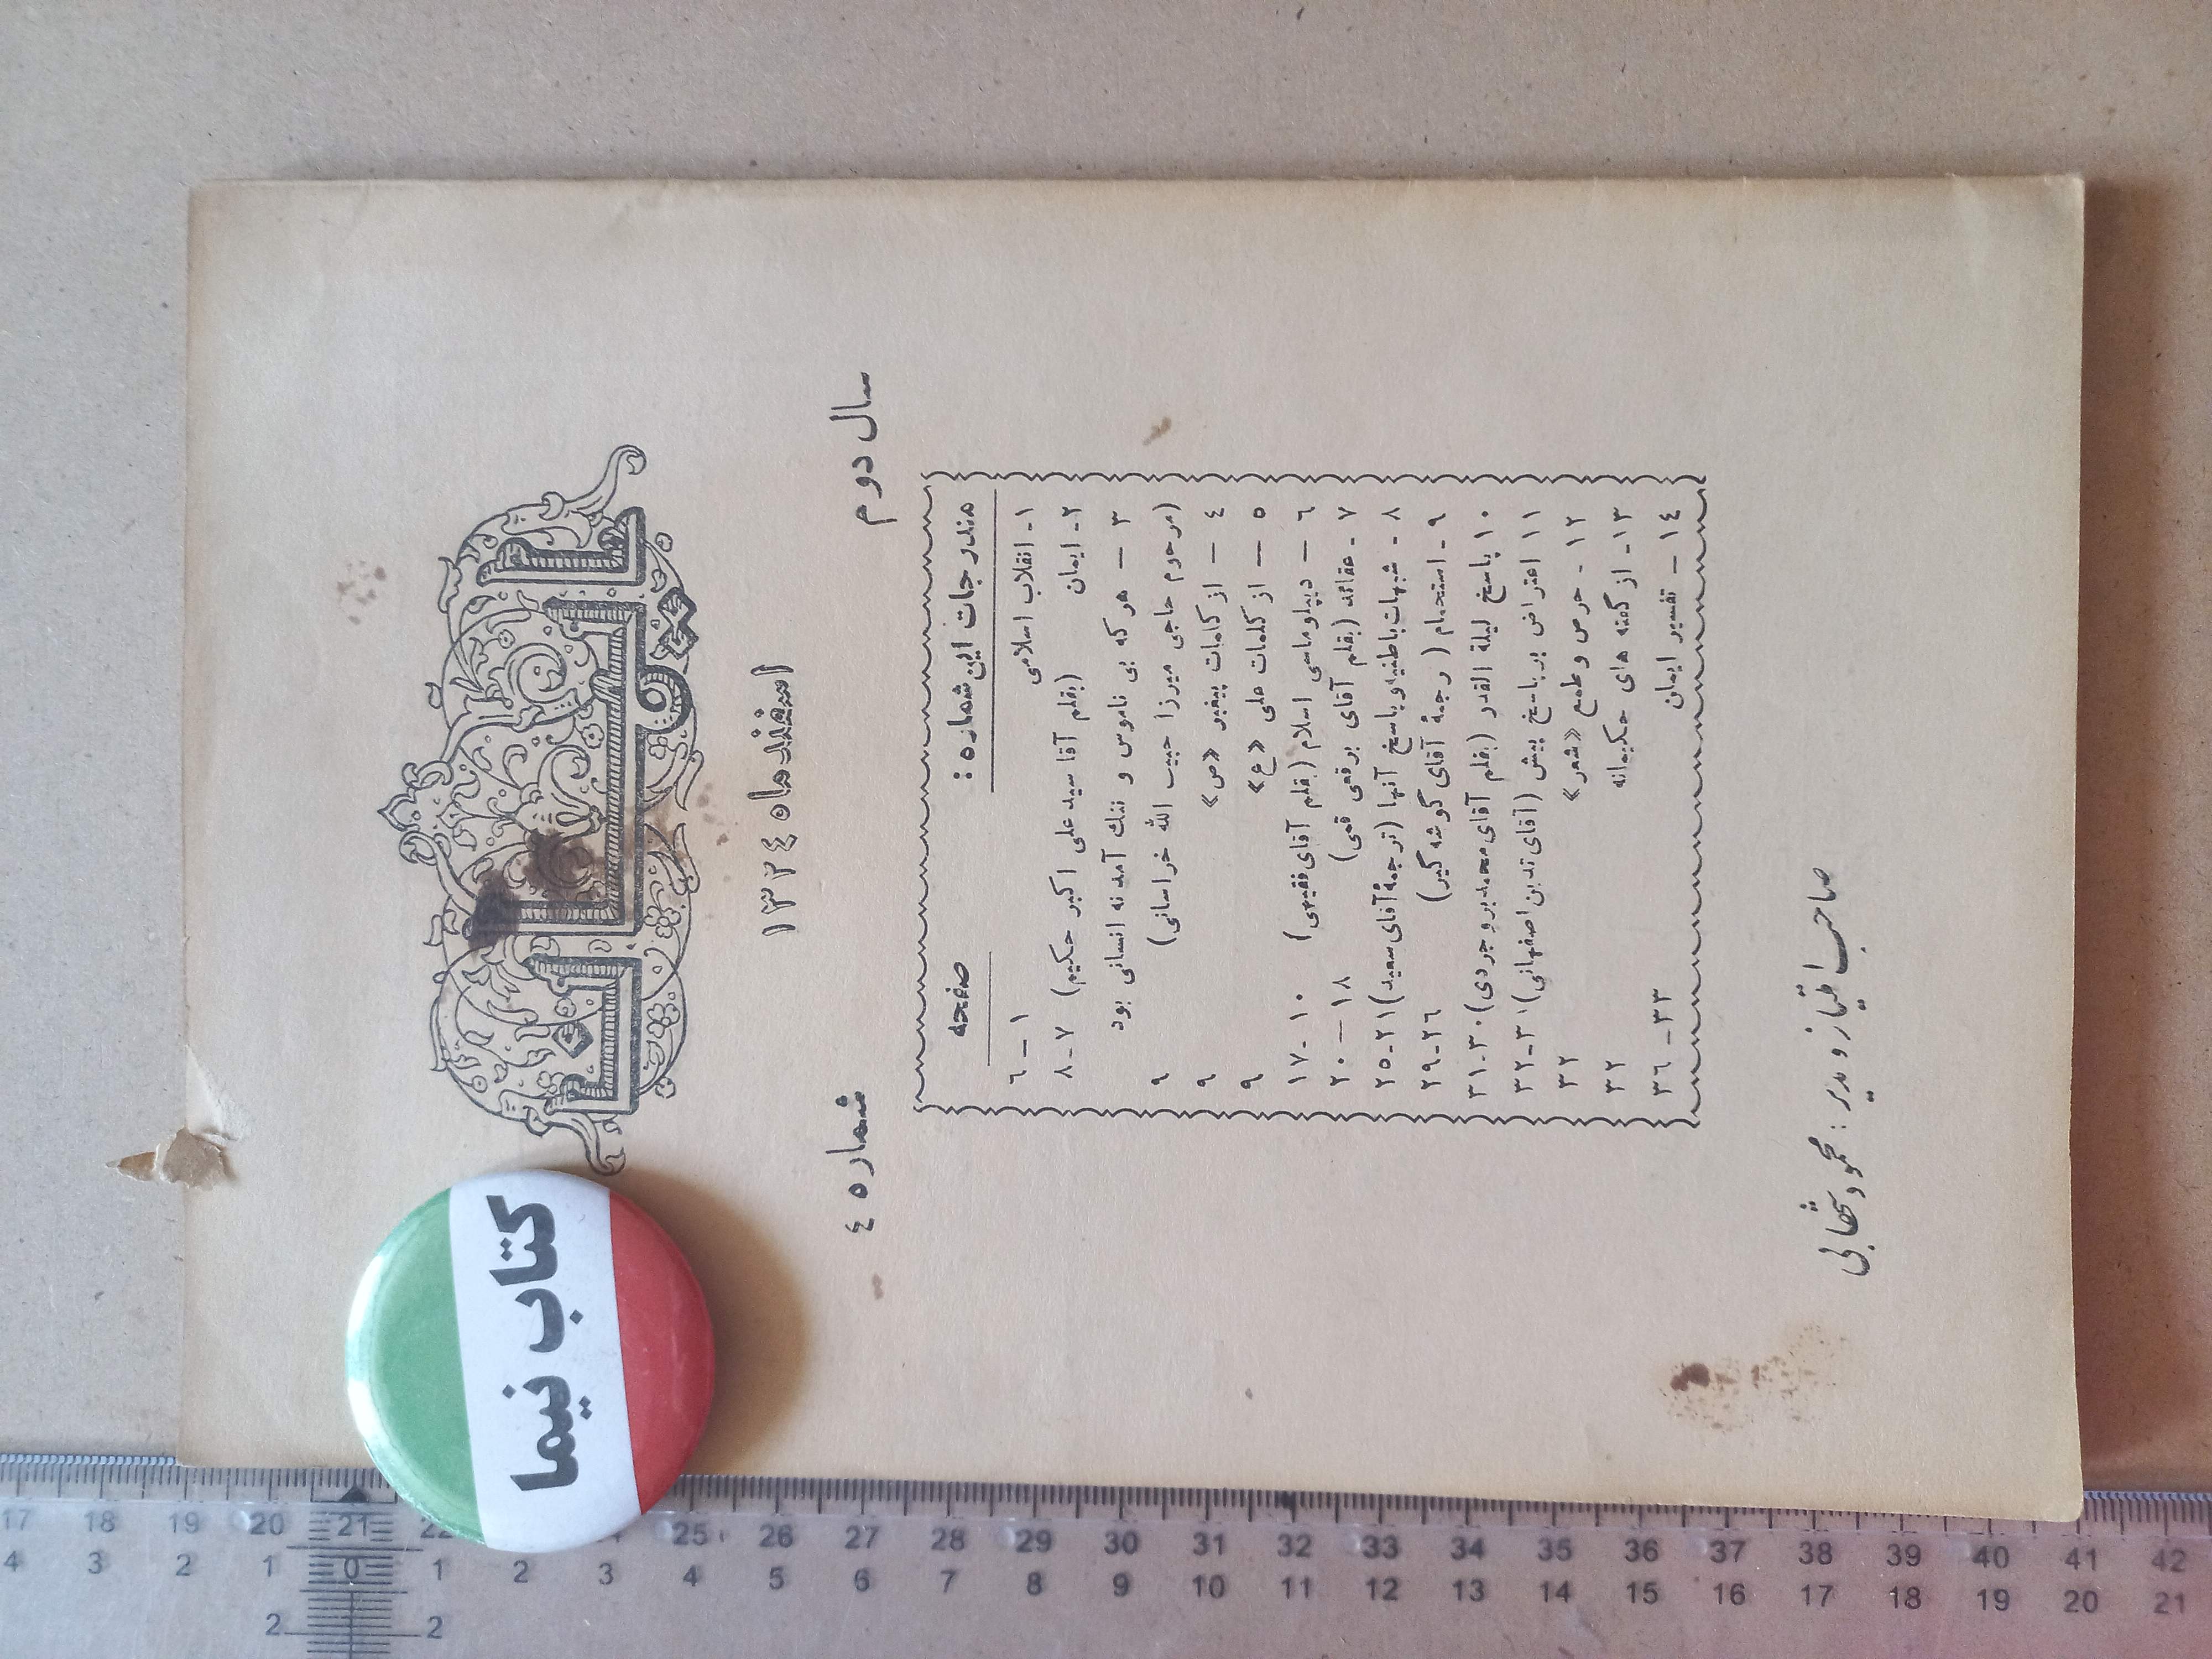 ایمان
اسفندماه ۱۳۲٤
سال دوم
شماره ٤
مندرجات این شماره :
صفحه
۱- انقلاب اسلامی ۱ – ٦
۲- ایمان (بقلم آقا سید علی اکبر حکیم) ۷-۸
۳ – هر که بی ناموس و ننگ آمد نه انسانی بود
(مرحوم حاجی میرزا حبیب الله خراسانی) ۹
٤ – از کلمات پیغمبر «ص» ۹
٥ – از کلمات علی «ع» ۹
٦ – دیپلوماسی اسلام (بقلم آقای فقیهی) ۱۰-۱۷
۷ - عقائد (بقلم آقای برقعی قمی) ۱۸ – ۲۰
۸ - شبهات باطنیه و پاسخ آنها (ترجمهٔ آقای سعید) ۲۱-۲۵
۹ - استحمام ( رجمهٔ آقای گوشه گیر) ۲٦-۲۹
۱۰ پاسخ لیلة القدر (بقلم آقای محمد بروجردی) ۳۰-۳۱
۱۱ اعتراض بر پاسخ پیش (آقای تدین اصفهانی) ۳۱-۳۲
۱۲ - حرص و طمع «شعر» ۳۲
۱۳- از گفته های حکیمانه ۳۲
۱٤ – تفسیر ایمان ۳۳ – ۳٦
صاحب امتیاز و مدیر : محمود شهابی
کتاب نیما
17 18 19 20 21 22 25 26 27 28 29 30 31 32 33 34 35 36 37 38 39 40 41 42
4 3 2 1 0 1 2 3 4 5 6 7 8 9 10 11 12 13 14 15 16 17 18 19 20 21
2 2